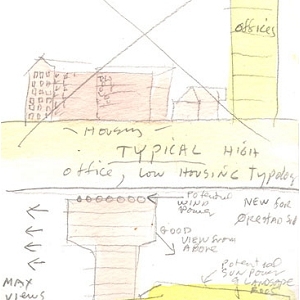 offices
Housing
TYPICAL HIGH
office, LOW HOUSING Typology
Potential
WIND
Power
NEW FOR
GOOD
VIEW FROM
ABOVE
MAX
VIEWS
Potential
SUN POWER
& LANDSCAPE